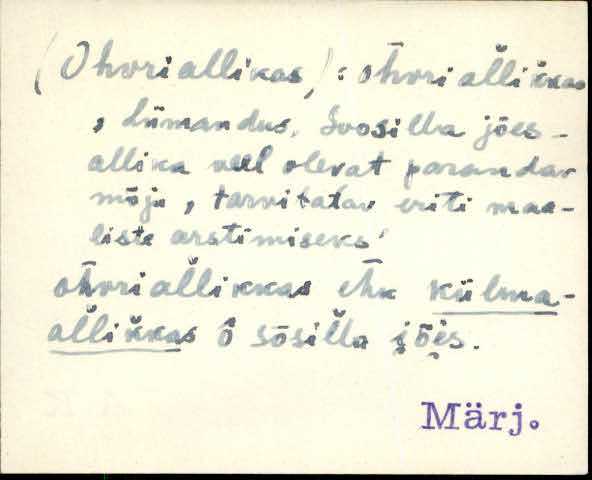 (Ohvriallikas): ohvriallikkas
, Liimandus, Soosilla jões-
allika veel olevat parandav
mõju, tarvitatav eriti maa-
liste arstimiseks'
ohvriallikkas ehk külma-
allikkas ô sōsilla jões.
Märj.